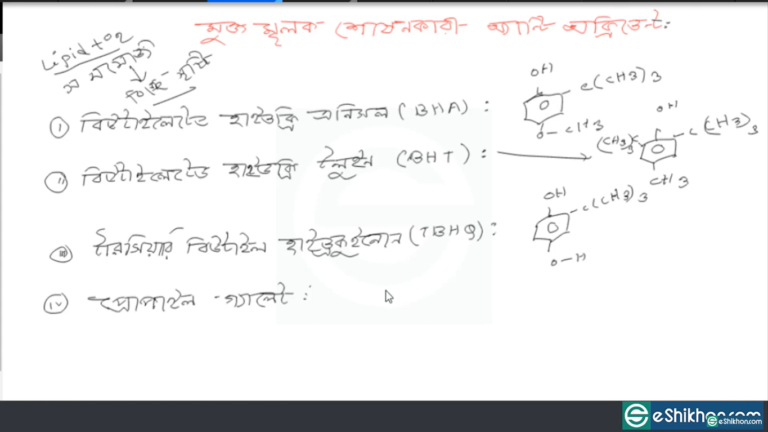 মুক্ত মূলক শোষনকারী এন্টি অক্সিডেন্ট:
Lipid + O2
(i) বিউটাইলেটেড হাইড্রক্সি অনিসল (BHA) :
OH
C(CH3)3
O-CH3
(ii) বিউটাইলেটেড হাইড্রক্সি টলুইন (BHT) :
OH
(CH3)3C
C(CH3)3
CH3
(iii) টারসিয়ারি বিউটাইল হাইড্রকুইনোন (TBHQ) :
OH
C(CH3)3
O-H
(iv) প্রোপাইল গ্যালেট :
eShikhon.com
eShikhon.com